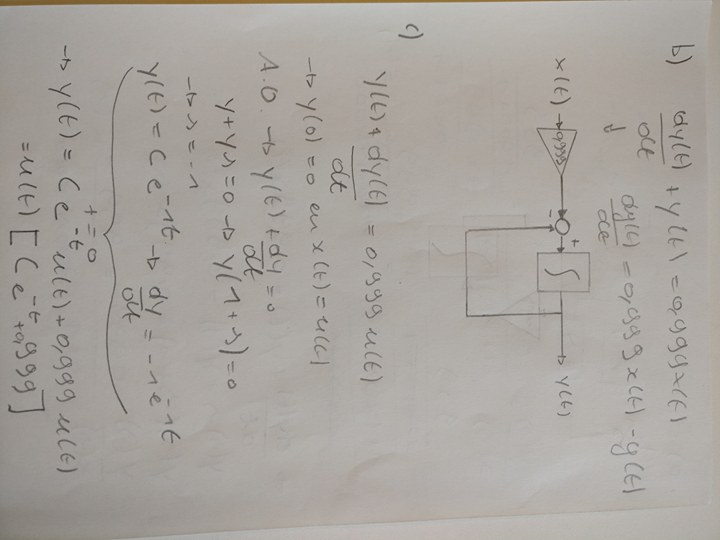 b) dy(t)/dt + y(t) = 0,999x(t)
y
dy(t)/dt = 0,999 x(t) - y(t)
x(t) 0,999 - + ∫ y(t)
c)
y(t) + dy(t)/dt = 0,999 u(t)
→ y(0) = 0 en x(t) = u(t)
A.O. → y(t) + dy/dt = 0
y + yλ = 0 → y(1+λ) = 0
→ λ = -1
y(t) = C e^-1t → dy/dt = -1e^-1t
t = 0
→ y(t) = C e^-t u(t) + 0,999 u(t)
= u(t) [C e^-t + 0,999]